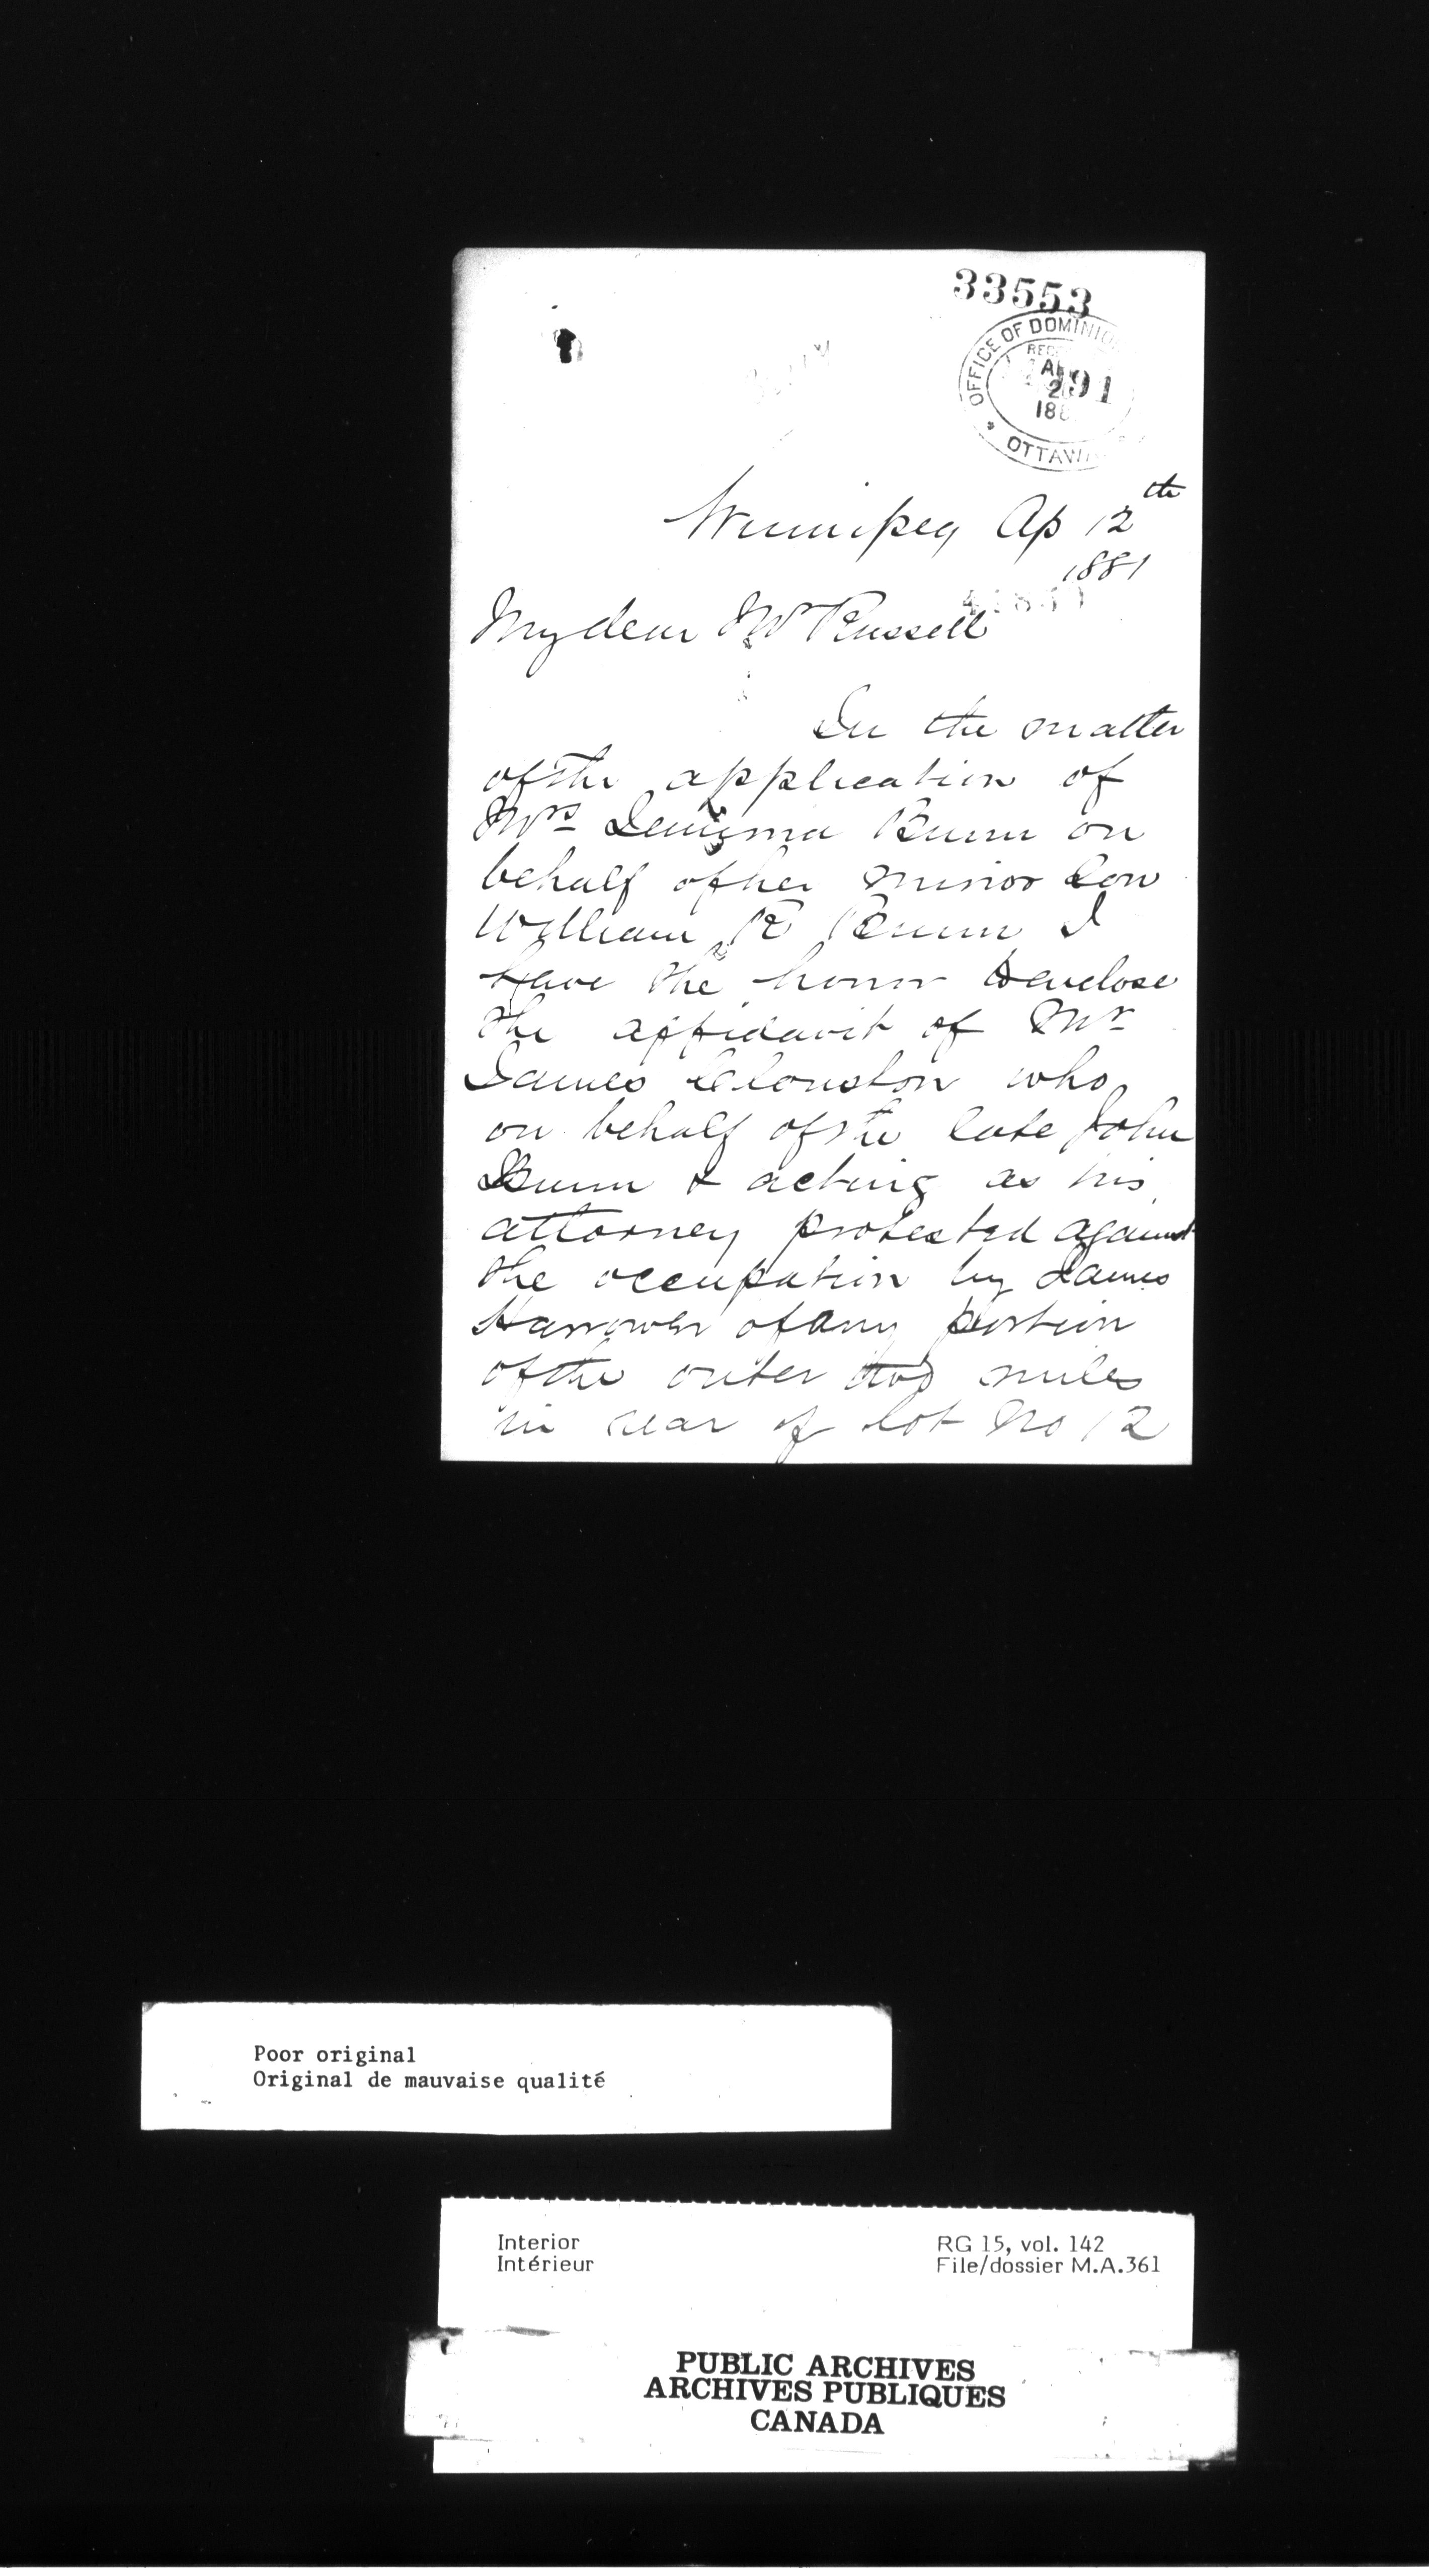 33553
OFFICE OF DOMINIO
OTTAWA
Winnipeg Ap 12th
1881
My dear Mr Russell
In the matter
of the application of
Mrs Jemima Bunn on
behalf of her minor son
William R Bunn I
have the honor to enclose
the affidavit of Mr
James Clouston who
on behalf of the late John
Bunn & acting as his
attorney protested against
the occupation by James
Harrower of any portion
of the outer two miles
in rear of lot No 12
Poor original
Original de mauvaise qualité
Interior
Intérieur
RG 15, vol. 142
File/dossier M.A.361
PUBLIC ARCHIVES
ARCHIVES PUBLIQUES
CANADA